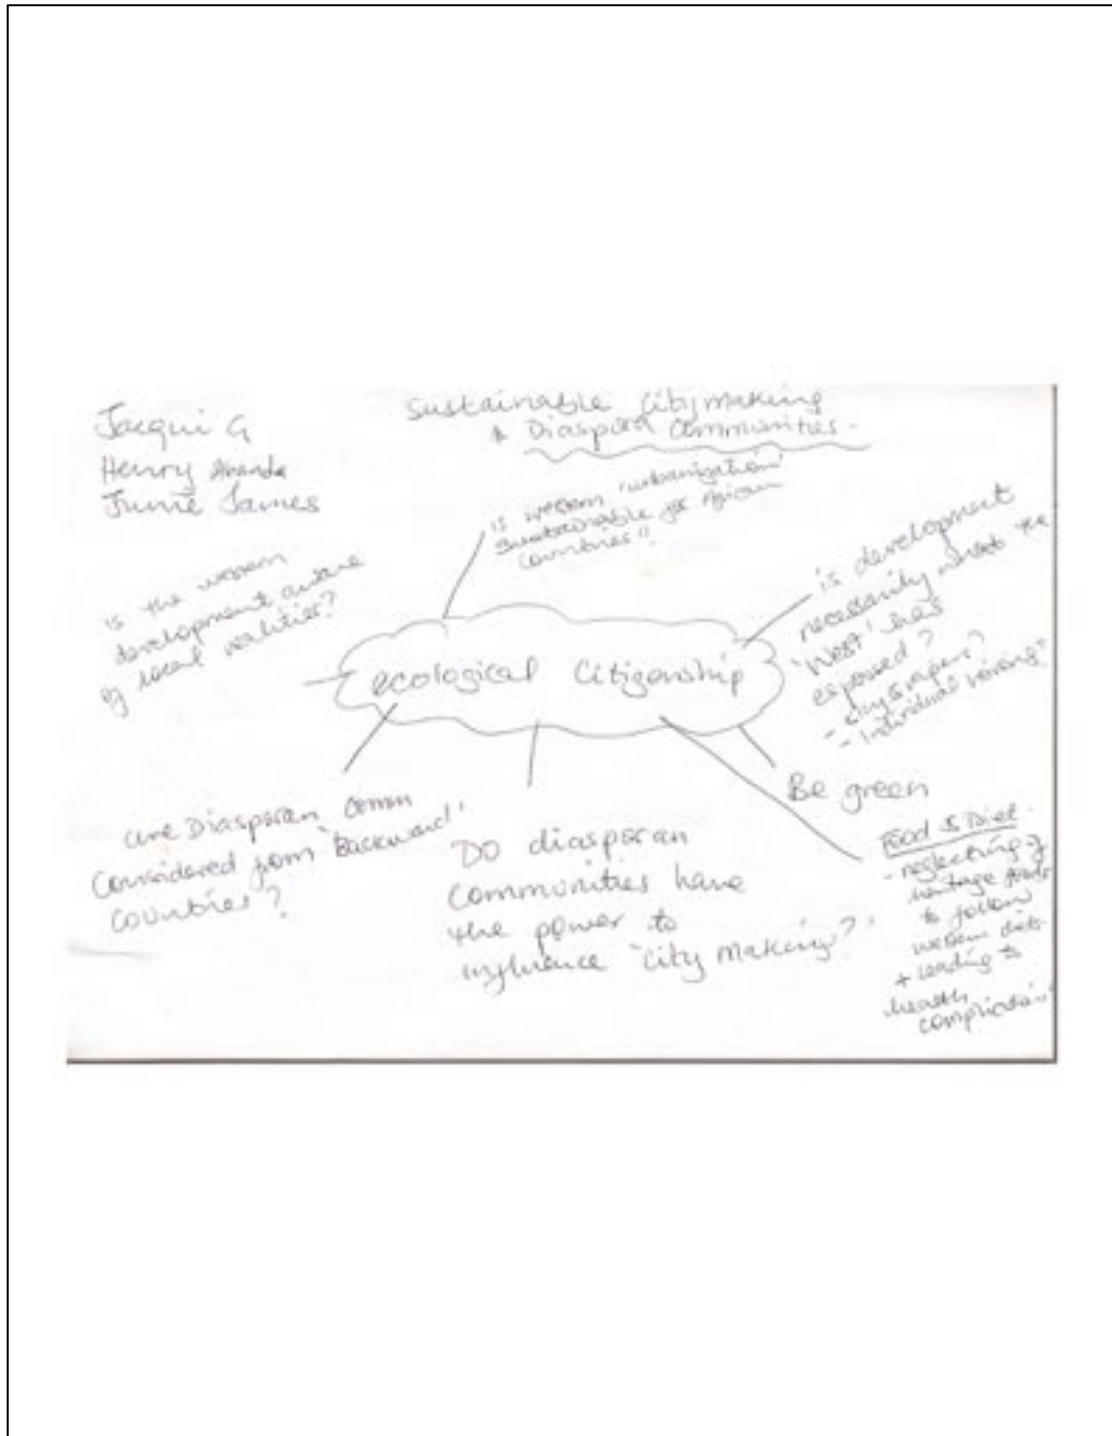 Jacqui G
Henry Ananda
Junie James
Sustainable Citymaking
& Diaspora Communities.
is western 'urbanization'
sustainable for African
countries"?
is the western
development aware
of local realities?
ecological Citizenship
is development
necessarily what the
'West' has
espoused?
- skyscrapers?
- Individual housing?
Be green
are Diasporan comm
considered from "backward'
countries?
Do diasporan
communities have
the power to
influence "city making?"
Food & Diet.
- neglecting of
heritage foods
to follow
western diets
+ leading to
health
complications